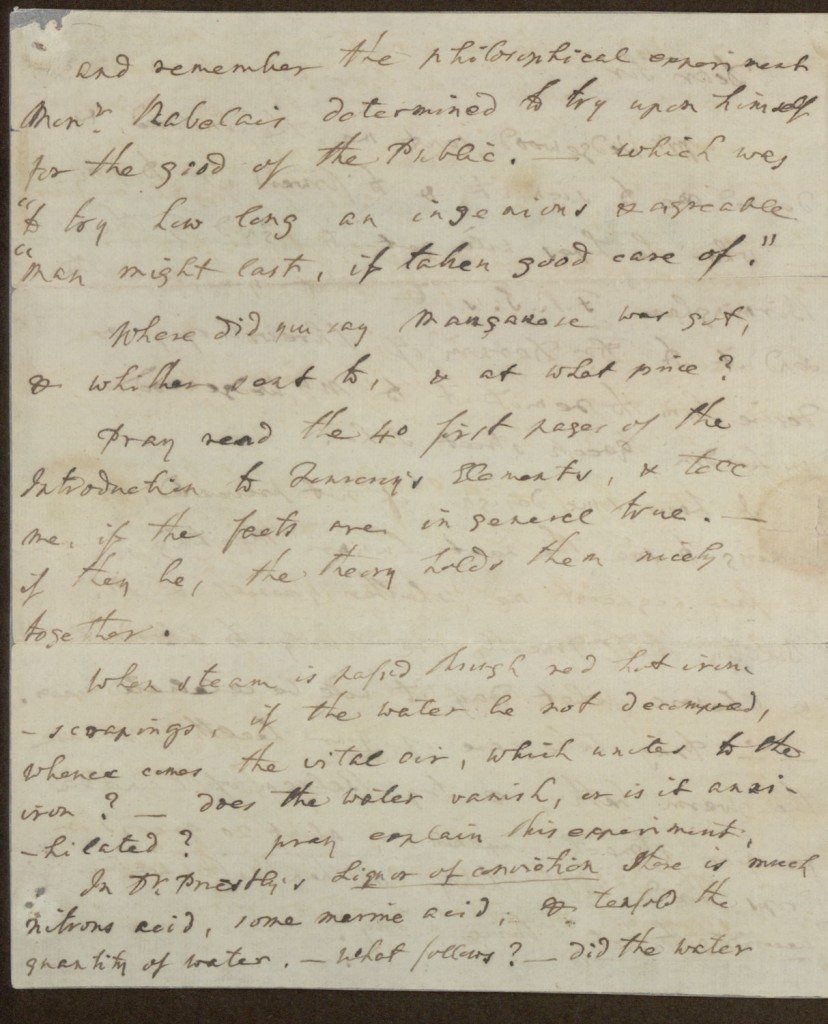 and remember the philosophical experiment
Monr. Rabelais determined to try upon himself
for the good of the Public. — which was
"to try how long an ingenious & agreable
"man might last, if taken good care of."
Where did you say Manganese was got,
& whither sent to, & at what price?
Pray read the 40 first pages of the
Introduction to Fourcroy's Elements, & tell
me, if the facts are in general true. —
if they be, the theory holds them nicely
together.
When steam is passed through red hot iron
-scrapings, if the water be not decomposed,
whence comes the vital air, which unites to the
iron? — does the water vanish, or is it anni-
-hilated? pray explain this experiment.
In Dr. Priestly's Liquor of conviction there is much
nitrous acid, some marine acid, & tenfold the
quantity of water. — what follows? — did the water